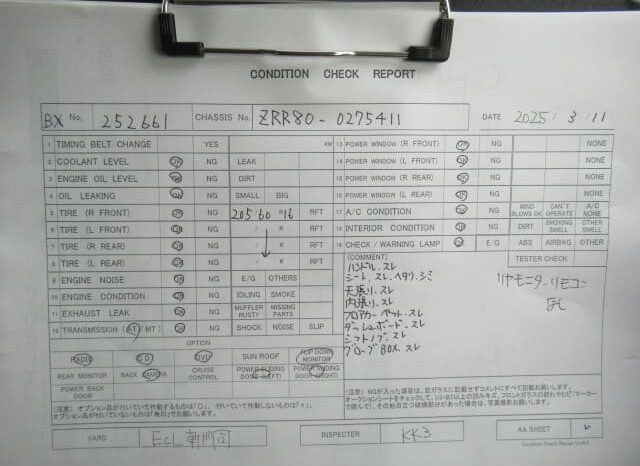 CONDITION CHECK REPORT
BX No. 252661 CHASSIS No. ZRR80-0275411 DATE 2025/3/11
1 TIMING BELT CHANGE YES KM 13 POWER WINDOW (R FRONT) OK NG NONE
2 COOLANT LEVEL OK NG LEAK 14 POWER WINDOW (L FRONT) OK NG NONE
3 ENGINE OIL LEVEL OK NG DIRT 15 POWER WINDOW (R REAR) OK NG NONE
4 OIL LEAKING OK NG SMALL BIG 16 POWER WINDOW (L REAR) OK NG NONE
5 TIRE (R FRONT) OK NG 205/60 R16 RFT 17 A/C CONDITION OK NG WIND BLOWS OK CAN'T OPERATE A/C NONE
6 TIRE (L FRONT) OK NG / R RFT 18 INTERIOR CONDITION OK NG DIRT SMOKING SMELL OTHER SMELL
7 TIRE (R REAR) OK NG / R RFT 19 CHECK / WARNING LAMP OK E/G ABS AIRBAG OTHER
8 TIRE (L REAR) OK NG / R RFT (COMMENT) TESTER CHECK
9 ENGINE NOISE OK NG E/G OTHERS
10 ENGINE CONDITION OK NG IDLING SMOKE
11 EXHAUST LEAK OK NG MUFFLER RUSTY MISSING PARTS
12 TRANSMISSION (AT/MT) OK NG SHOCK NOISE SLIP
ハンドル.スレ
シート.スレ.ヘタリ.シミ
天張り.スレ
内張り.スレ
フロアカーペット.スレ
ダッシュボード.スレ
シフトノブ.スレ
グローブBOX.スレ
リヤモニターリモコン
OPTION
RADIO CD DVD SUN ROOF FLIP DOWN MONITOR
REAR MONITOR BACK CAMERA CRUISE CONTROL POWER SLIDING DOOR (LEFT) POWER SLIDING DOOR (RIGHT)
POWER BACK DOOR
(注意) オプション品が付いていて作動するものは「○」、付いていて作動しないものは「×」、
オプション品が付いていないものは「無印」でお願いします。
(注意) NGが入った場合は、空ガラスに記載せずコメントにすべて記載お願いします。
YARD ECL 新舞子 INSPECTER KK3 AA SHEET